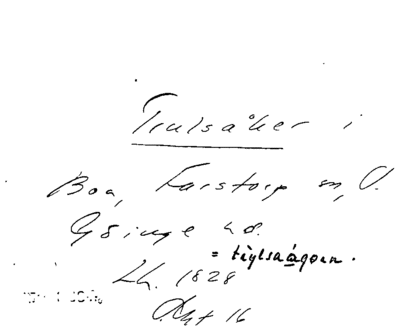 Trulsåker i
Boa, Farstorp sn, V.
Göinge hd.
= tr̀ylsaágörn.
Lh. 1828
Akt 16